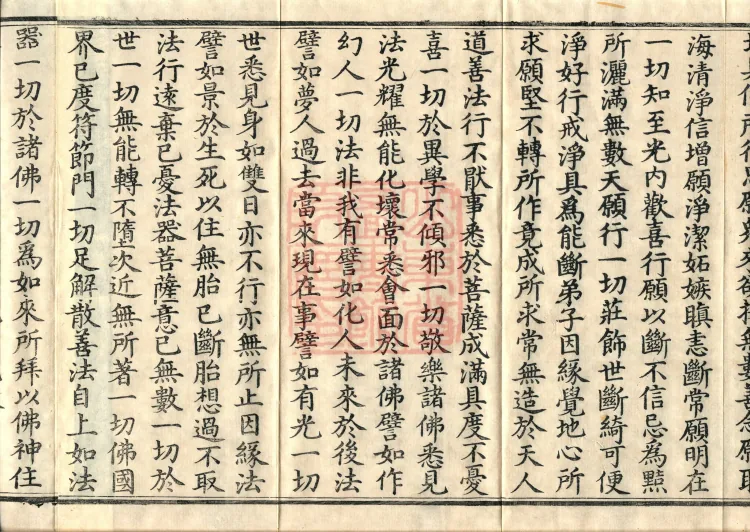 海清淨信增願淨潔妬嫉瞋恚斷常願明在
一切知至光内歡喜行願以斷不信忌爲黠
所灑滿無數天願行一切莊飾世斷綺可便
淨好行戒淨具爲能斷弟子因緣覺地心所
求願堅不轉所作竟成所求常無造於天人
道善法行不猒事悉於菩薩成滿具度不憂
喜一切於異學不傾邪一切敬樂諸佛悉見
法光耀無能化壞常悉會面於諸佛譬如作
幻人一切法非我有譬如化人未來於後法
譬如夢人過去當來現在事譬如有光一切
世悉見身如雙日亦不行亦無所止因緣法
譬如景於生死以住無胎已斷胎想過不取
法行遠棄已憂法器菩薩意已無數一切於
世一切無能轉不墮次近無所著一切佛國
界已度符節門一切足解散善法自上如法
器一切於諸佛一切爲如來所拜以佛神住